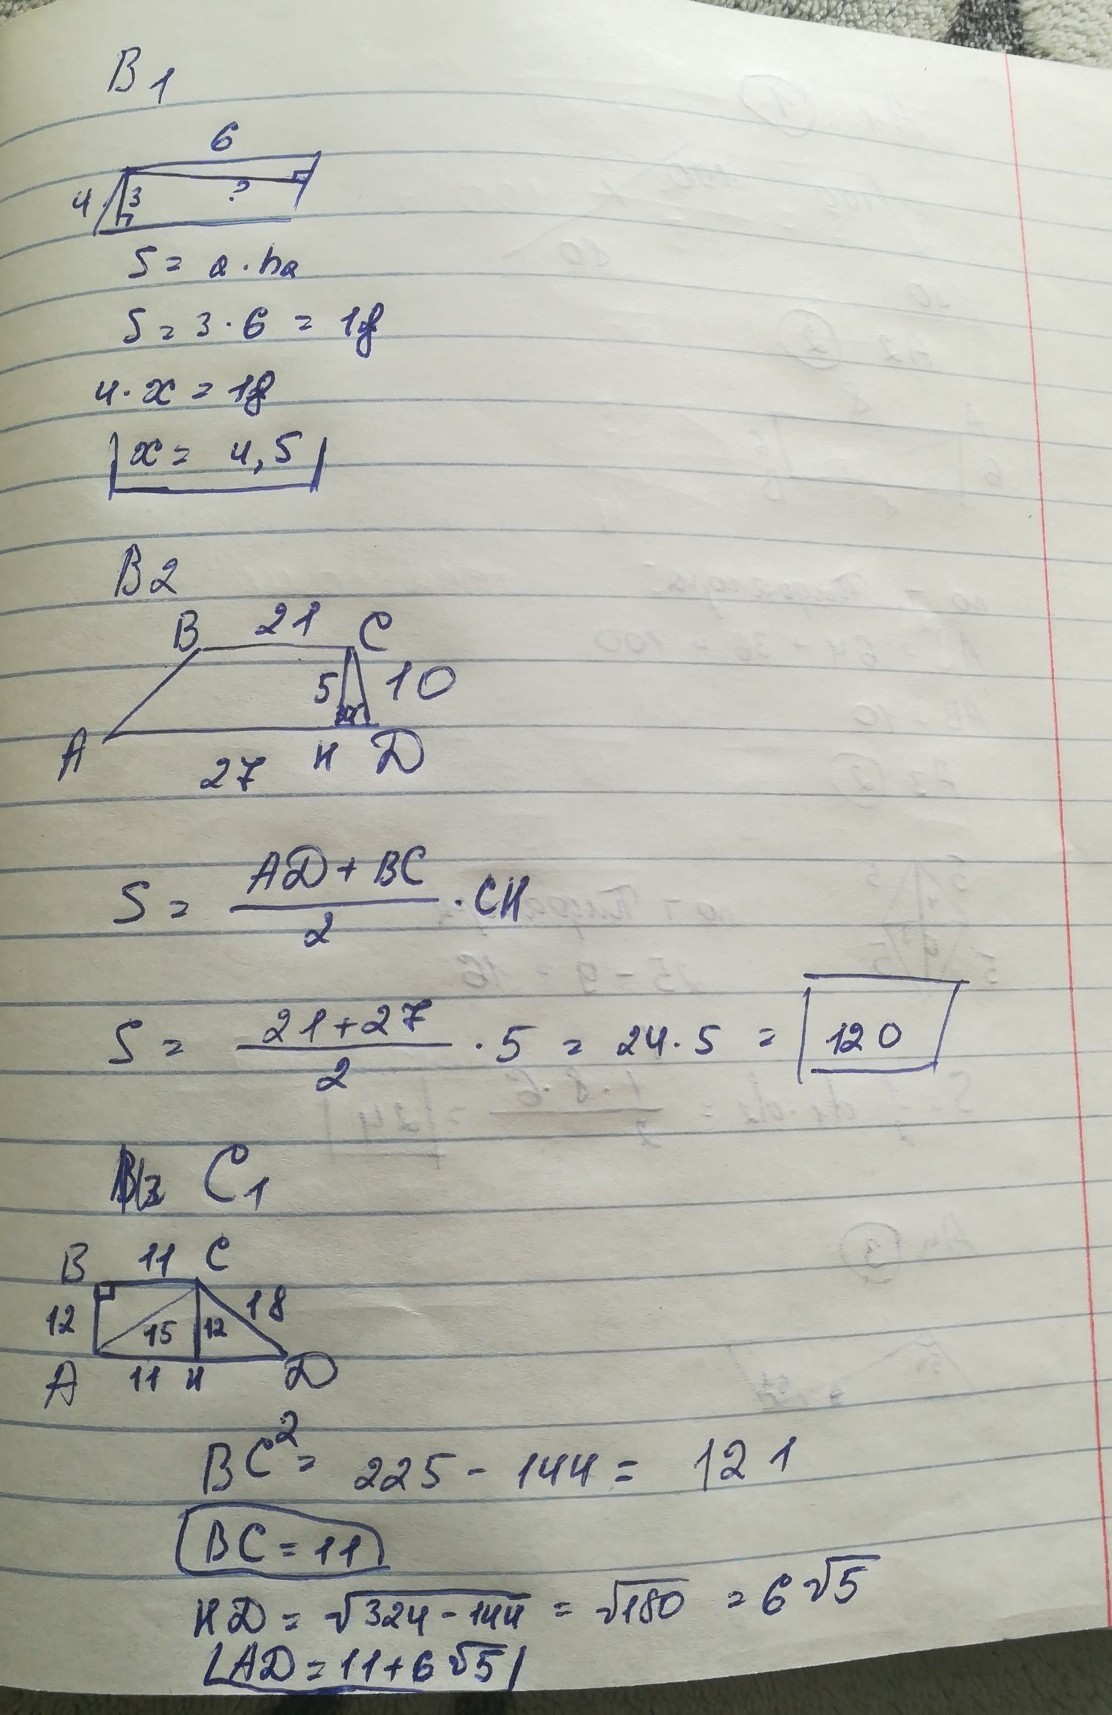 В1
6
4 3 ?
S = a · ha
S = 3 · 6 = 18
4 · x = 18
x = 4,5
В2
B 21 C
5 10
A 27 H D
S = AD + BC / 2 · CH
S = 21 + 27 / 2 · 5 = 24 · 5 = 120
C1
B 11 C
12 15 12 18
A 11 H D
BC² = 225 - 144 = 121
BC = 11
HD = √324 - 144 = √180 = 6√5
AD = 11 + 6√5